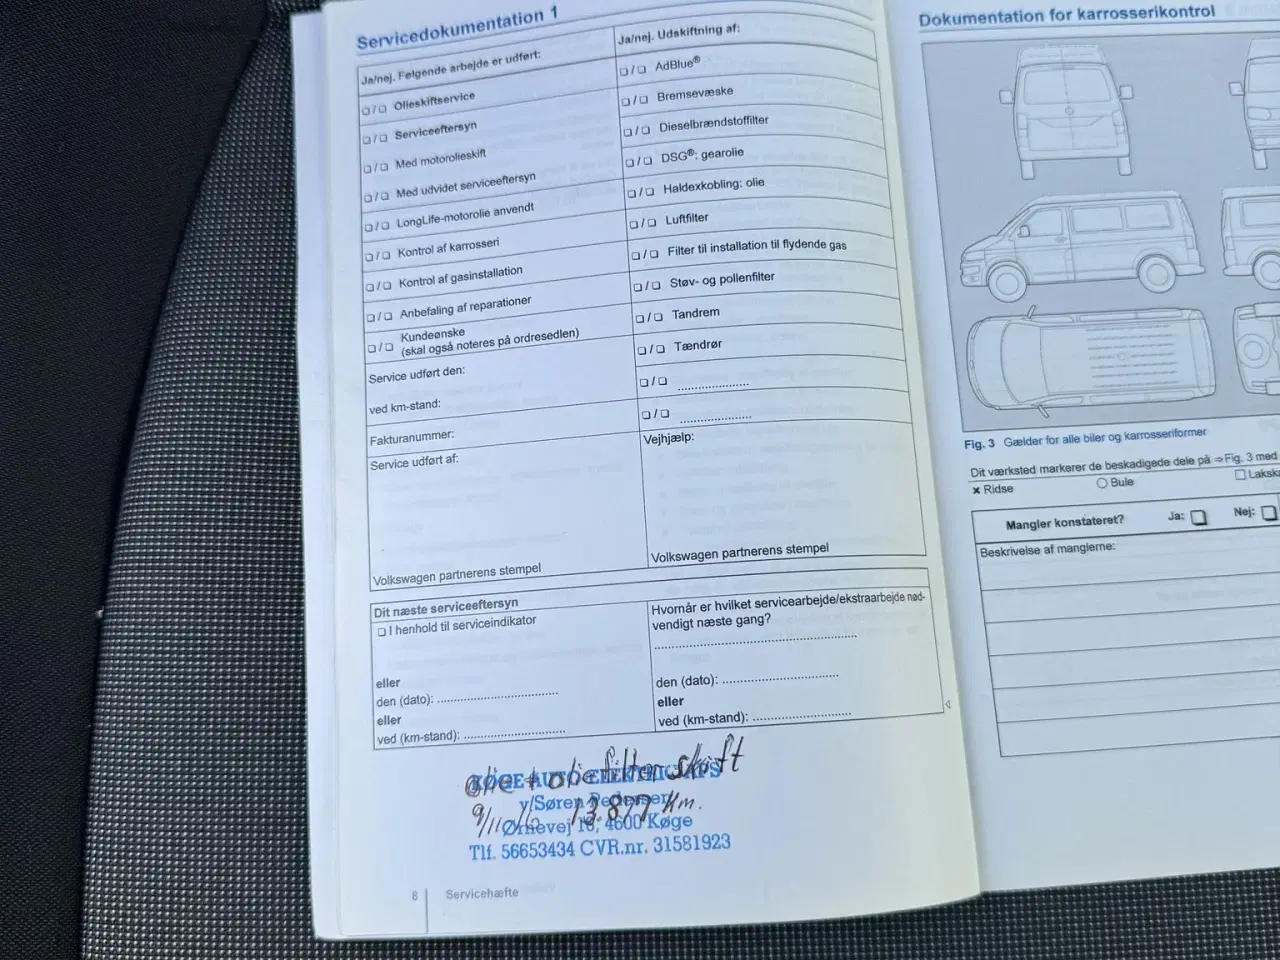 Servicedokumentation 1
Ja/nej. Følgende arbejde er udført:
❏ / ❏ Olieskiftservice
❏ / ❏ Serviceeftersyn
❏ / ❏ Med motorolieskift
❏ / ❏ Med udvidet serviceeftersyn
❏ / ❏ LongLife-motorolie anvendt
❏ / ❏ Kontrol af karrosseri
❏ / ❏ Kontrol af gasinstallation
❏ / ❏ Anbefaling af reparationer
❏ / ❏ Kundeønske
(skal også noteres på ordresedlen)
Service udført den:
ved km-stand:
Fakturanummer:
Service udført af:
Volkswagen partnerens stempel
Ja/nej. Udskiftning af:
❏ / ❏ AdBlue®
❏ / ❏ Bremsevæske
❏ / ❏ Dieselbrændstoffilter
❏ / ❏ DSG®: gearolie
❏ / ❏ Haldexkobling: olie
❏ / ❏ Luftfilter
❏ / ❏ Filter til installation til flydende gas
❏ / ❏ Støv- og pollenfilter
❏ / ❏ Tandrem
❏ / ❏ Tændrør
❏ / ❏ ....................
❏ / ❏ ....................
Vejhjælp:
Volkswagen partnerens stempel
Dit næste serviceeftersyn
❏ I henhold til serviceindikator
eller
den (dato): ..............................
eller
ved (km-stand): .........................
Hvornår er hvilket servicearbejde/ekstraarbejde nød-
vendigt næste gang?
..................................................
den (dato): .............................
eller
ved (km-stand): .........................
olie + oliefilter skift
9/11 13.877 Km.
KØGE AUTO ELEKTRO ApS
v/Søren Pedersen
Ørnevej 18, 4600 Køge
Tlf. 56653434 CVR.nr. 31581923
8 Servicehæfte
Dokumentation for karrosserikontrol
Fig. 3 Gælder for alle biler og karrosseriformer
Dit værksted markerer de beskadigede dele på ⇒Fig. 3 med
× Ridse ○ Bule
Mangler konstateret? Ja: ❏ Nej: ❏
Beskrivelse af manglerne: